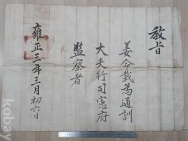 敎旨
姜命戟爲通訓
大夫行司憲府
監察者
雍正三年三月初六日
kobay